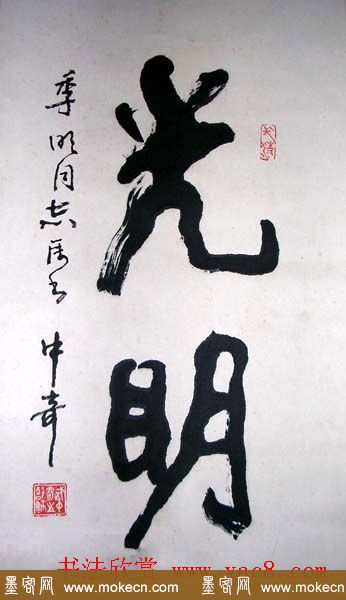 光明
季明同志属书 中奇
书法欣赏 www.yac8.com
墨客网 www.mokecn.com 墨客网 www.mokecn.com